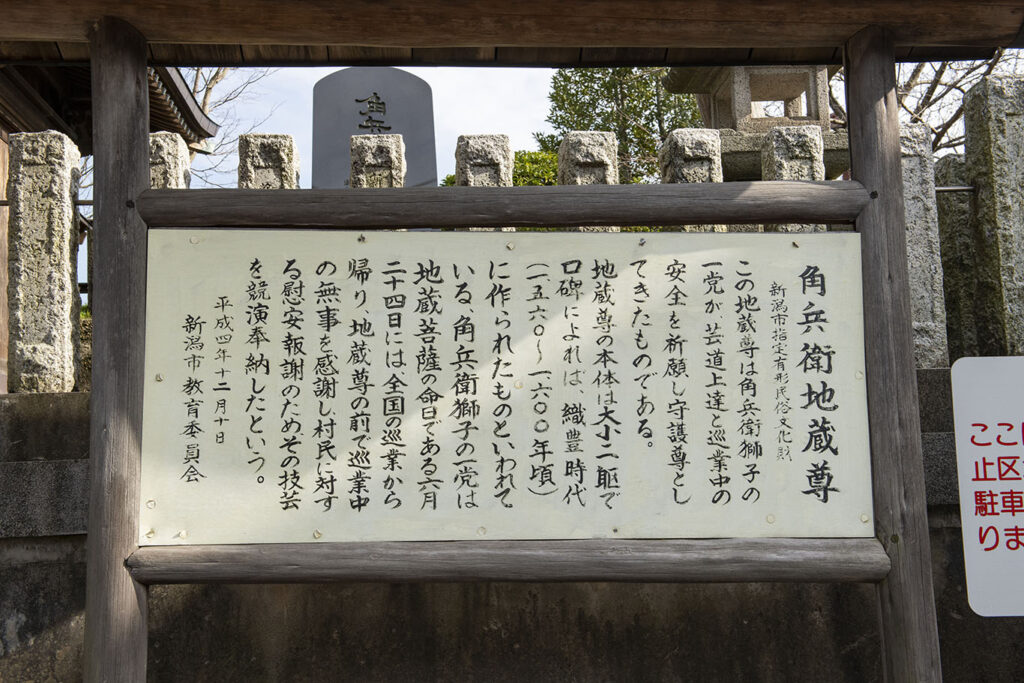 角兵衛地蔵尊
新潟市指定有形民俗文化財
この地蔵尊は角兵衛獅子の
一党が、芸道上達と巡業中の
安全を祈願し守護尊とし
てきたものである。
地蔵尊の本体は大小二躯で
口碑によれば、織豊時代
(一五六〇〜一六〇〇年頃)
に作られたものといわれて
いる、角兵衛獅子の一党は
地蔵菩薩の命日である六月
二十四日には全国の巡業から
帰り、地蔵尊の前で巡業中
の無事を感謝し、村民に対す
る慰安報謝のためその技芸
を競演奉納したという。
平成四年十二月十日
新潟市教育委員会
角兵
ここ
止区
駐車
りま